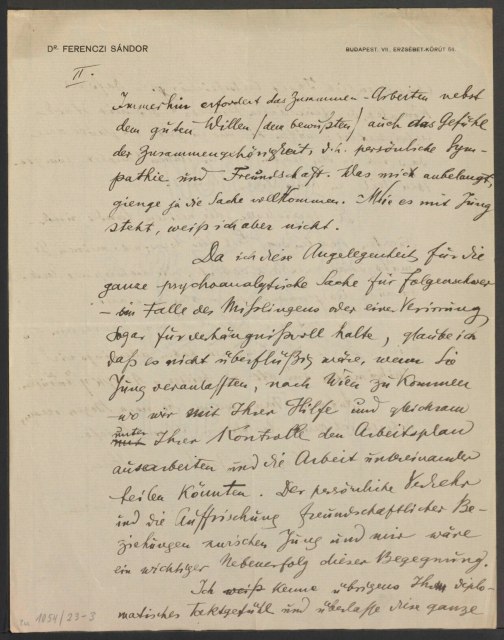 Dr. FERENCZI SÁNDOR
BUDAPEST, VII., ERZSÉBET-KÖRÚT 54.
II.
Immerhin erfordert das Zusammen-Arbeiten nebst
dem guten Willen (dem bewußten) auch das Gefühl
der Zusammengehörigkeit, d.h. persönliche Sym-
pathie und Freundschaft. Was mich anbelangt,
gienge ja die Sache vollkommen. Wie es mit Jung
steht, weiß ich aber nicht.
Da ich diese Angelegenheit für die
ganze psychoanalytische Sache für folgenschwer
– im Falle des Mißlingens oder eine Verirrung
sogar für verhängnißvoll halte, glaube ich
daß es nicht überflüßig wäre, wenn Sie
Jung veranlaßten, nach Wien zu kommen
– wo wir mit Ihrer Hilfe und gleichsam
unter
mit Ihrer Kontrolle den Arbeitsplan
ausarbeiten und die Arbeit untereinander
teilen könnten. Der persönliche Verkehr
und die Auffrischung freundschaftlicher Be-
ziehungen zwischen Jung und mir wäre
ein wichtiger Nebenerfolg dieser Begegnung.
Ich weiß kenne übrigens Ihren diplo-
matisches Taktgefühl und überlasse diese ganze
1054/23-3